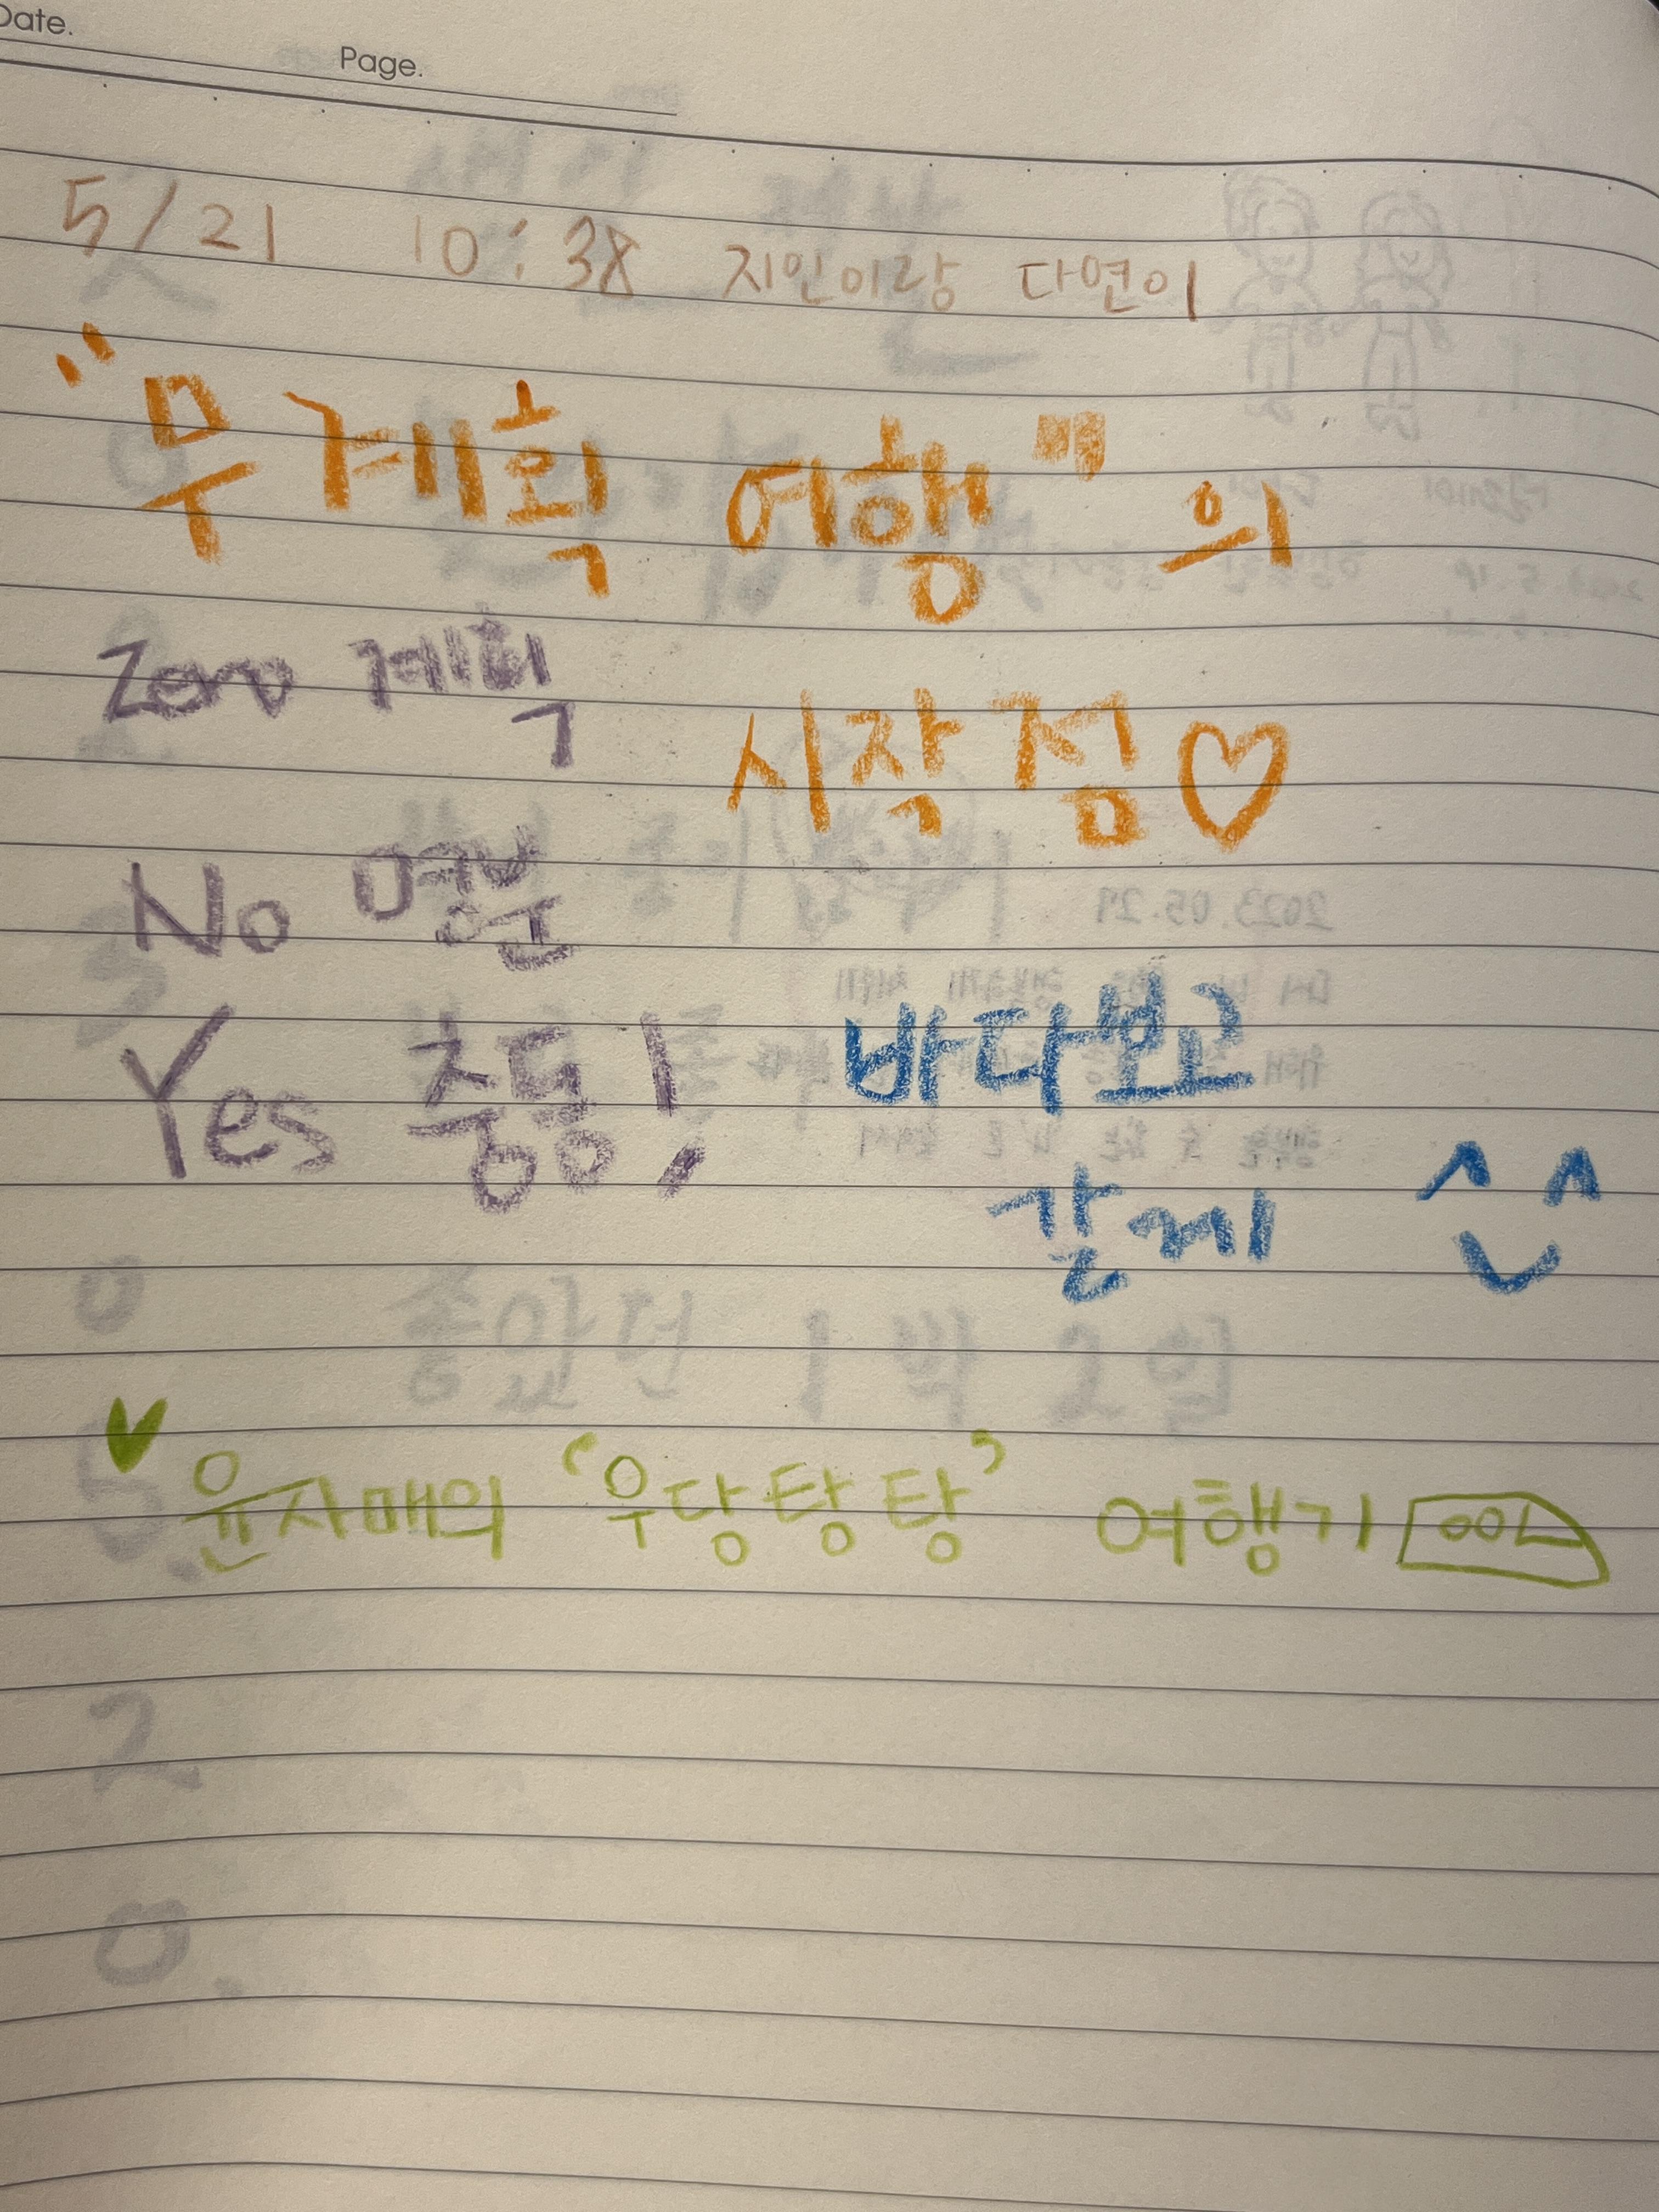 Date.
Page.
5/21 10:38 지인이랑 다연이
"무계획 여행"의
Zero 계획
시작점♡
No
Yes 충동!
바다보고
갈게 ^^
윤자매의 '우당탕탕' 여행기